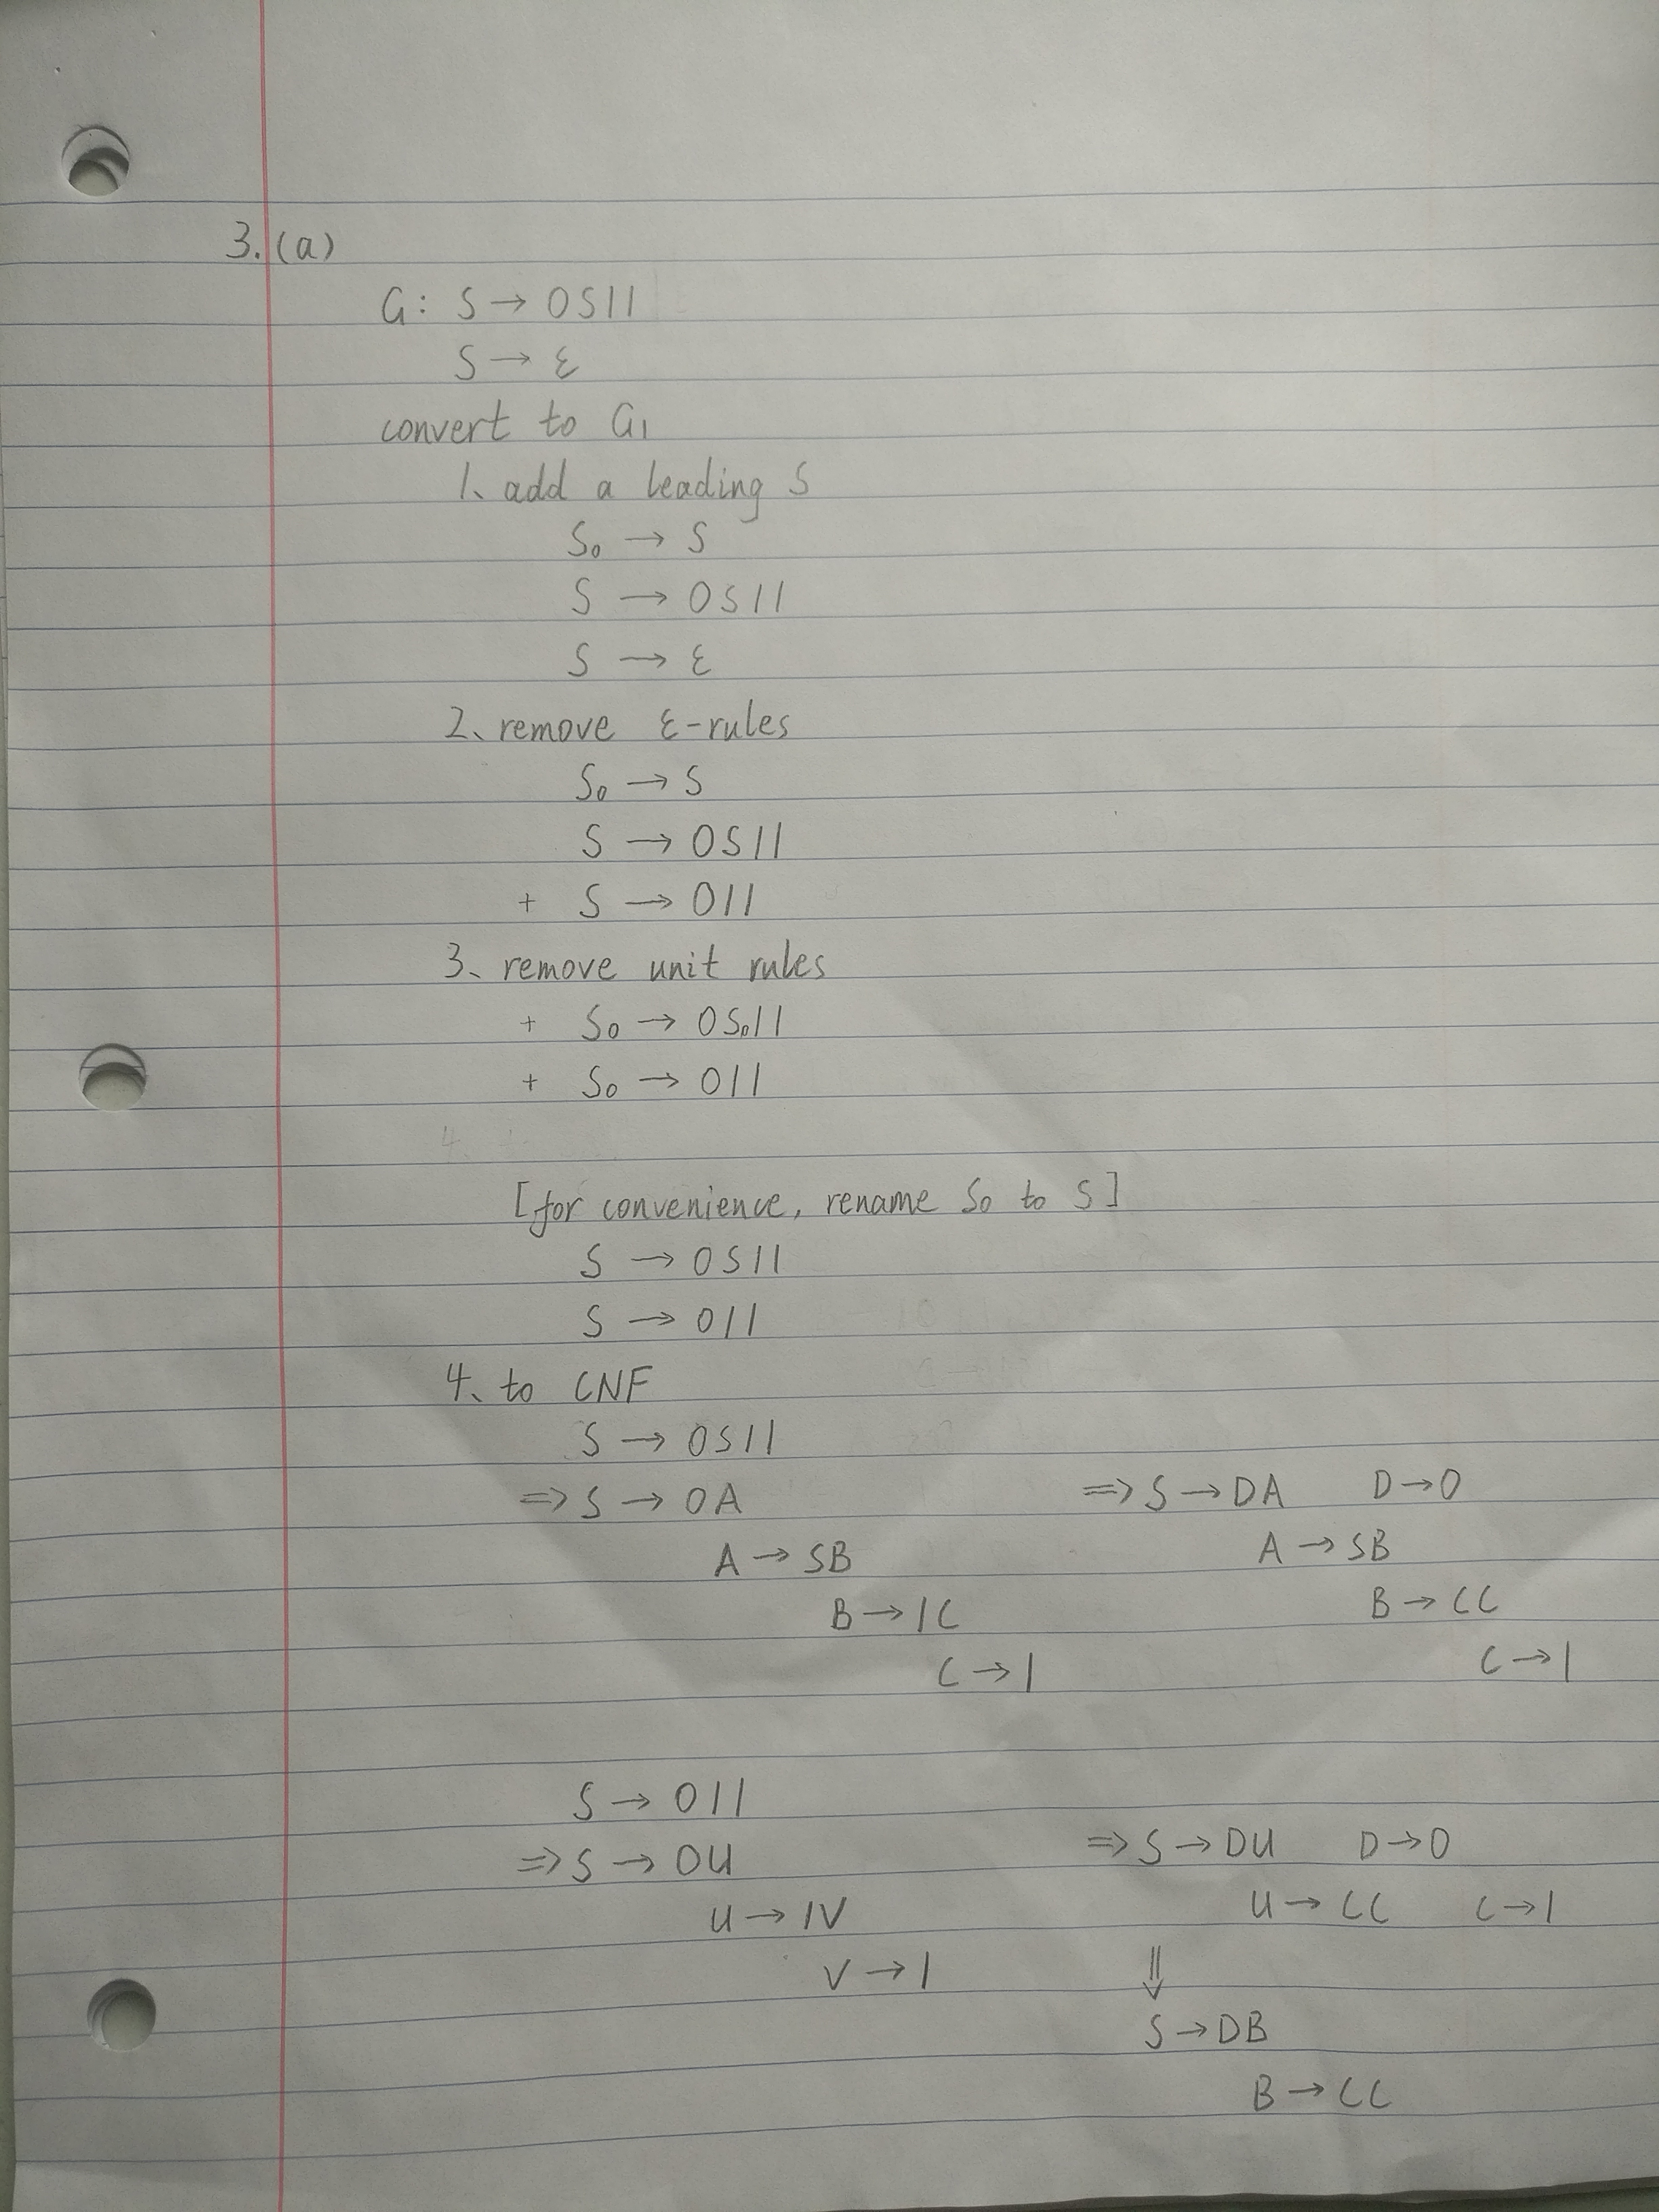 3.(a)
G: S → 0S11
S → ε
convert to G₁
1、add a leading S
S₀ → S
S → 0S11
S → ε
2、remove ε-rules
S₀ → S
S → 0S11
+ S → 011
3、remove unit rules
+ S₀ → 0S₀11
+ S₀ → 011
[for convenience, rename S₀ to S]
S → 0S11
S → 011
4、to CNF
S → 0S11
⇒ S → 0A
A → SB
B → 1C
C → 1
⇒ S → DA D → 0
A → SB
B → CC
C → 1
S → 011
⇒ S → 0U
U → 1V
V → 1
⇒ S → DU D → 0
U → CC C → 1
⇓
S → DB
B → CC